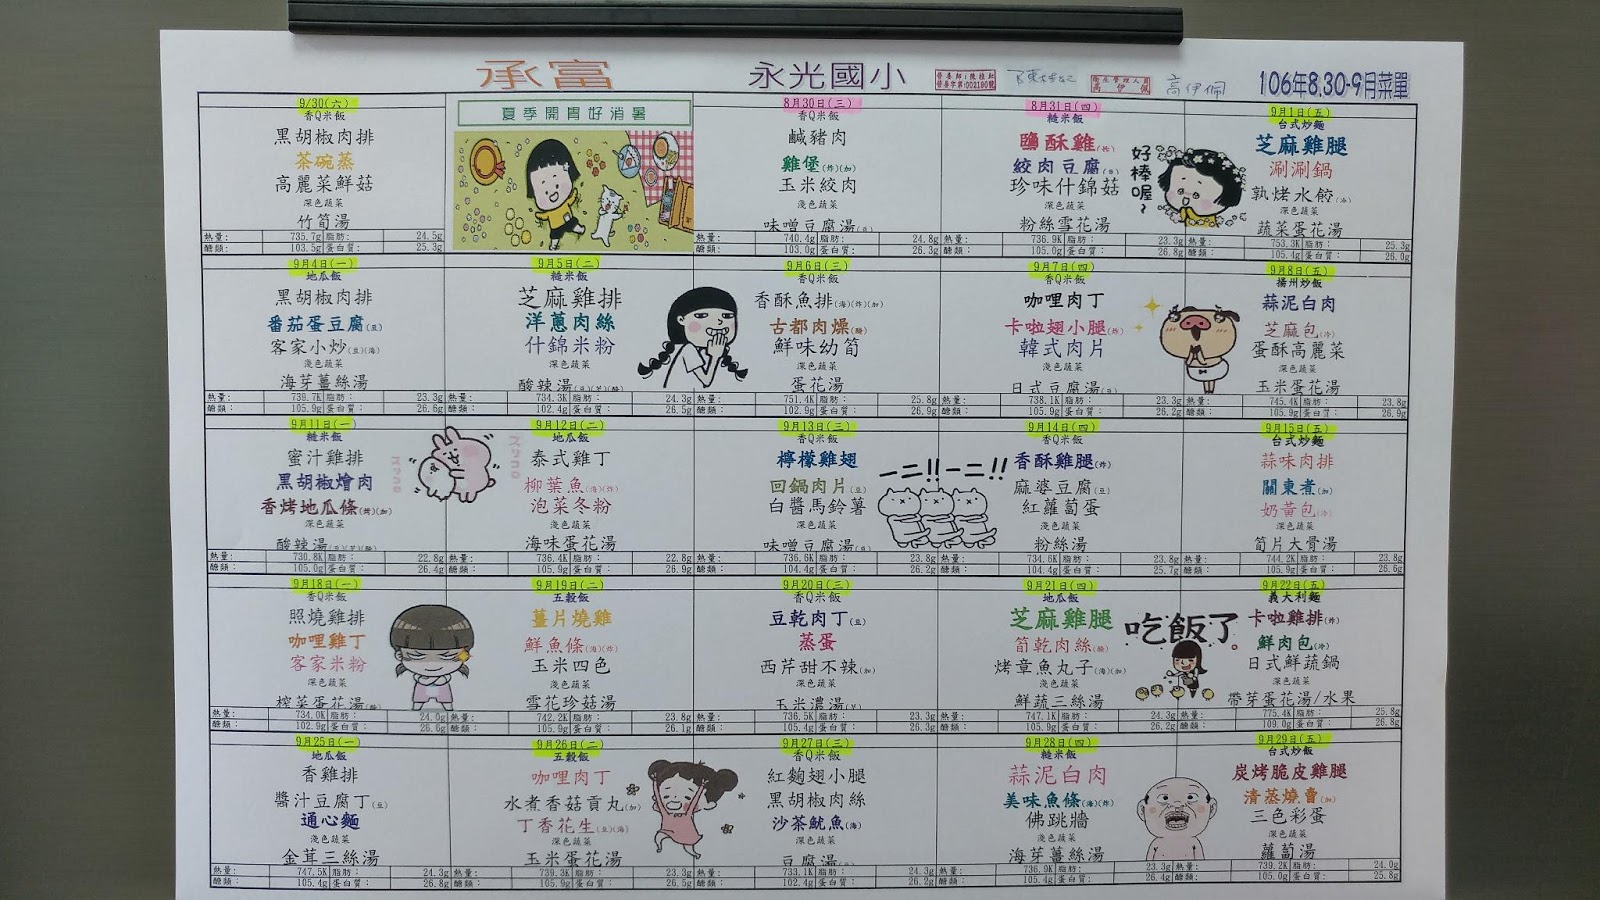 承富 永光國小 106年8.30-9月菜單
營養師:陳桂
營養字第:002180號
衛生管理人員
高伊佩
高伊佩
9/30(六)
香Q米飯
黑胡椒肉排
茶碗蒸
高麗菜鮮菇
深色蔬菜
竹筍湯
熱量: 735.7g 脂肪: 24.5g
醣類: 103.5g 蛋白質: 25.3g
夏季開胃好消暑
8月30日(三)
香Q米飯
鹹豬肉
雞堡(炸)(加)
玉米絞肉
味噌豆腐湯
熱量: 740.4g 脂肪: 24.8g
醣類: 103.0g 蛋白質: 26.3g
8月31日(四)
糙米飯
鹽酥雞(炸)
絞肉豆腐(豆)
珍味什錦菇
淺色蔬菜
粉絲雪花湯
熱量: 736.9K 脂肪: 23.3g
醣類: 105.0g 蛋白質: 26.8g
好棒喔~
9月1日(五)
台式炒麵
芝麻雞腿
涮涮鍋
熟烤水餃(冷)
深色蔬菜
蔬菜蛋花湯
熱量: 753.3K 脂肪: 25.3g
醣類: 105.4g 蛋白質: 26.0g
9月4日(一)
地瓜飯
黑胡椒肉排
番茄蛋豆腐(豆)
客家小炒(豆)(海)
淺色蔬菜
海芽薑絲湯
熱量: 739.7K 脂肪: 23.3g
醣類: 105.9g 蛋白質: 26.6g
9月5日(二)
糙米飯
芝麻雞排
洋蔥肉絲
什錦米粉
深色蔬菜
酸辣湯
熱量: 734.3K 脂肪: 24.3g
醣類: 102.4g 蛋白質: 26.5g
9月6日(三)
香Q米飯
香酥魚排(海)(炸)(加)
古都肉燥(醃)
鮮味幼筍
深色蔬菜
蛋花湯
熱量: 751.4K 脂肪: 25.8g
醣類: 102.9g 蛋白質: 26.9g
9月7日(四)
香Q米飯
咖哩肉丁
卡啦翅小腿(炸)
韓式肉片
淺色蔬菜
日式豆腐湯
熱量: 738.1K 脂肪: 23.3g
醣類: 105.9g 蛋白質: 26.2g
9月8日(五)
揚州炒飯
蒜泥白肉
芝麻包(冷)
蛋酥高麗菜
深色蔬菜
玉米蛋花湯
熱量: 745.4K 脂肪: 23.8g
醣類: 105.9g 蛋白質: 26.9g
9月11日(一)
糙米飯
蜜汁雞排
黑胡椒燴肉
香烤地瓜條(烤)(加)
深色蔬菜
酸辣湯
熱量: 730.8K 脂肪: 22.8g
醣類: 105.0g 蛋白質: 26.4g
9月12日(二)
地瓜飯
泰式雞丁
柳葉魚(海)(炸)
泡菜冬粉
淺色蔬菜
海味蛋花湯
熱量: 736.4K 脂肪: 22.8g
醣類: 105.9g 蛋白質: 26.9g
9月13日(三)
香Q米飯
檸檬雞翅
回鍋肉片(豆)
白醬馬鈴薯
深色蔬菜
味噌豆腐湯
熱量: 736.6K 脂肪: 23.8g
醣類: 104.4g 蛋白質: 26.2g
一二!!一二!!
9月14日(四)
香Q米飯
香酥雞腿(炸)
麻婆豆腐(豆)
紅蘿蔔蛋
淺色蔬菜
粉絲湯
熱量: 734.6K 脂肪: 23.8g
醣類: 104.4g 蛋白質: 25.7g
9月15日(五)
台式炒麵
蒜味肉排
關東煮(加)
奶黃包(冷)
深色蔬菜
筍片大骨湯
熱量: 744.2K 脂肪: 23.8g
醣類: 105.0g 蛋白質: 26.6g
9月18日(一)
香Q米飯
照燒雞排
咖哩雞丁
客家米粉
深色蔬菜
榨菜蛋花湯
熱量: 734.0K 脂肪: 24.0g
醣類: 102.9g 蛋白質: 26.6g
9月19日(二)
五穀飯
薑片燒雞
鮮魚條(海)(炸)
玉米四色
淺色蔬菜
雪花珍菇湯
熱量: 742.2K 脂肪: 23.8g
醣類: 105.9g 蛋白質: 26.1g
9月20日(三)
香Q米飯
豆乾肉丁(豆)
蒸蛋
西芹甜不辣(加)
深色蔬菜
玉米濃湯
熱量: 736.5K 脂肪: 23.3g
醣類: 105.4g 蛋白質: 26.3g
9月21日(四)
地瓜飯
芝麻雞腿
筍乾肉絲(醃)
烤章魚丸子(海)(加)
淺色蔬菜
鮮蔬三絲湯
熱量: 747.1K 脂肪: 24.3g
醣類: 105.9g 蛋白質: 26.2g
吃飯了
9月22日(五)
義大利麵
卡啦雞排(炸)
鮮肉包(冷)
日式鮮蔬鍋
深色蔬菜
帶芽蛋花湯/水果
熱量: 775.4K 脂肪: 25.8g
醣類: 109.0g 蛋白質: 26.8g
9月25日(一)
地瓜飯
香雞排
醬汁豆腐丁(豆)
通心麵
深色蔬菜
金茸三絲湯
熱量: 747.5K 脂肪: 24.3g
醣類: 105.4g 蛋白質: 26.8g
9月26日(二)
五穀飯
咖哩肉丁
水煮香菇貢丸(加)
丁香花生(豆)(海)
深色蔬菜
玉米蛋花湯
熱量: 739.3K 脂肪: 23.3g
醣類: 105.9g 蛋白質: 26.5g
9月27日(三)
香Q米飯
紅麴翅小腿
黑胡椒肉絲
沙茶魷魚(海)
深色蔬菜
豆腐湯
熱量: 733.1K 脂肪: 24.3g
醣類: 102.4g 蛋白質: 26.2g
9月28日(四)
糙米飯
蒜泥白肉
美味魚條(海)(炸)
佛跳牆
淺色蔬菜
海芽薑絲湯
熱量: 736.9K 脂肪: 23.3g
醣類: 105.4g 蛋白質: 26.4g
9月29日(五)
台式炒飯
炭烤脆皮雞腿
清蒸燒賣(加)
三色彩蛋
深色蔬菜
蘿蔔湯
熱量: 739.2K 脂肪: 24.0g
醣類: 105.0g 蛋白質: 25.8g